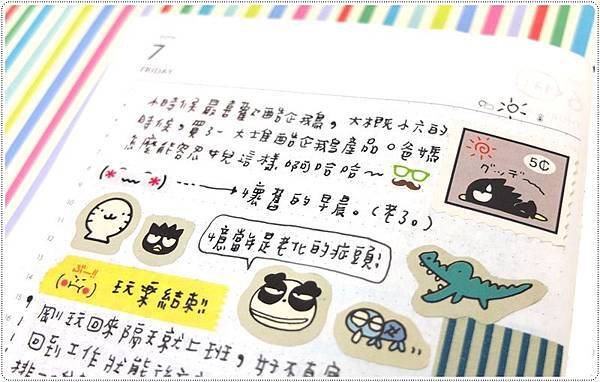 7
FRIDAY
小時候最喜歡ㄉ酷企鵝,大概小六的
時候,買了一大堆酷企鵝產品。爸媽
怎麼能容忍女兒這樣啊哈哈~
懷舊的早晨。(老了。)
5¢
グッデ〜
憶當年是老化的症頭!
玩樂結束!!
剛玩回來隔天就上班,好不真實
回到工作狀態後